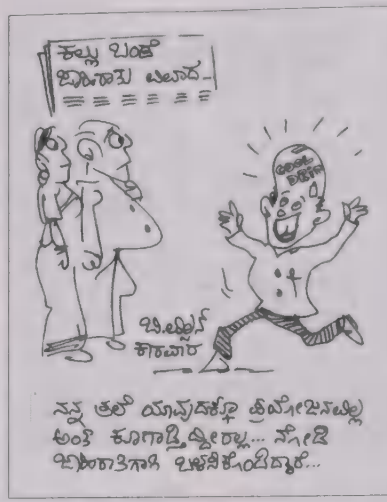 ಕಲ್ಲು ಬಂಡೆ
ಜಾಹಿರಾತು ವಿವಾದ..
COOL
DRINK
ಕಾರವಾರ
ನನ್ನ ತಲೆ ಯಾವುದಕ್ಕೂ ಪ್ರಯೋಜನವಿಲ್ಲ
ಅಂತ ಕೂಗಾಡ್ತಿದ್ದೀರಲ್ಲಾ... ನೋಡಿ
ಜಾಹಿರಾತಿಗಾಗಿ ಬಳಸಿಕೊಂಡಿದ್ದಾರೆ...